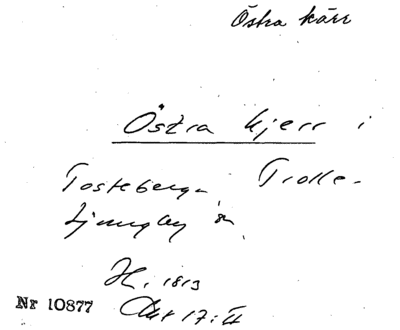 Östra kärr
Östra kjerr i
Tosteberga Trolle-
Ljungby sn
H. 1813
Akt 17:II
Nr 10877